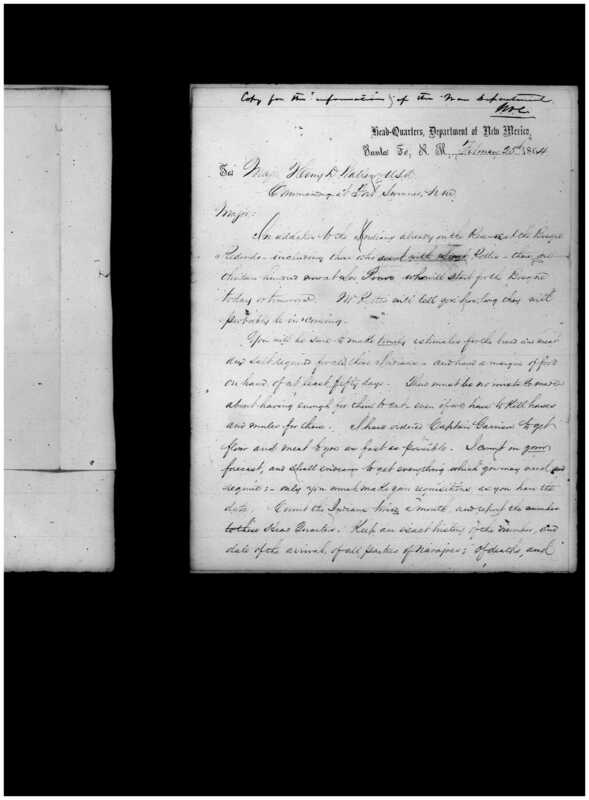 Copy for the information of the War Department
Head-Quarters, Department of New Mexico,
Santa Fé, N. M., February 25th 1864
To: Major Henry D. Wallen, U.S.A.
Commanding at Fort Sumner, N.M.
Major:
In addition to the Indians already on the at the Bosque
Redondo including those who went with Lieut - there are
thirteen hundred now at Los Pinos who will start for the Bosque
today or tomorrow. Mr will tell you how long they will
probably be in coming.
You will be sure to make timely estimates for the bread and meat
and salt required for all these Indians - and have a margin of food
on hand of at least fifty days. There must be no mistake made
about having enough for them to eat, even if we have to kill horses
and mules for them. I have ordered Captain Garrison to get
flour and meat to you as fast as possible. I on your
forecast, and shall endeavor to get everything which you may need and
require; - only you must make your requisitions, as you have the
data. Count the Indians twice a month, and report the number
to these Head Quarters. Keep an exact history of the number, and
date of the arrival, of all parties of Navajoes; of deaths, and